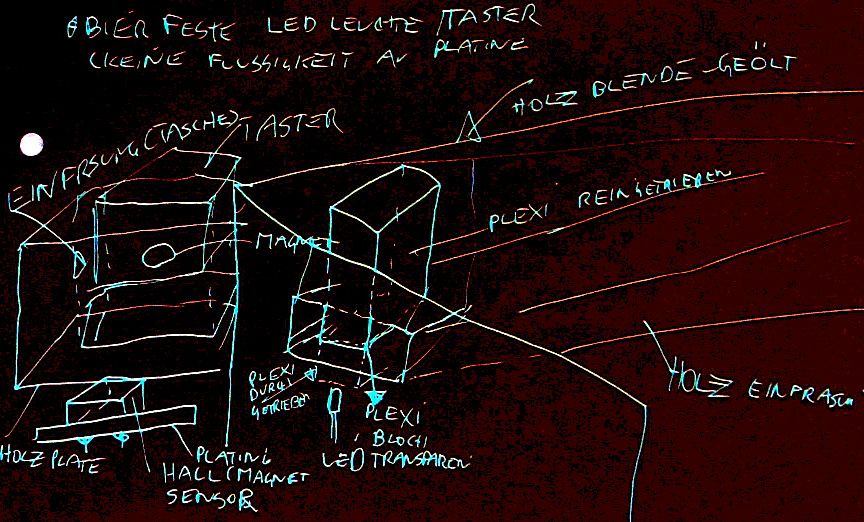 BIER FESTE LED LEUCHTE /TASTER
(KEINE FLÜSSIGKEIT AN PLATINE
HOLZ BLENDE - GEÖLT
EINFRSUNG (TASCHE)
TASTER
PLEXI REINGETRIEBEN
MAGNET
PLEXI
DURCH
GETRIEBEN
HOLZ EINFRASUN
PLEXI
BLOCH
LED TRANSPAREN
HOLZ PLATE
PLATINE
HALL (MAGNET
SENSOR